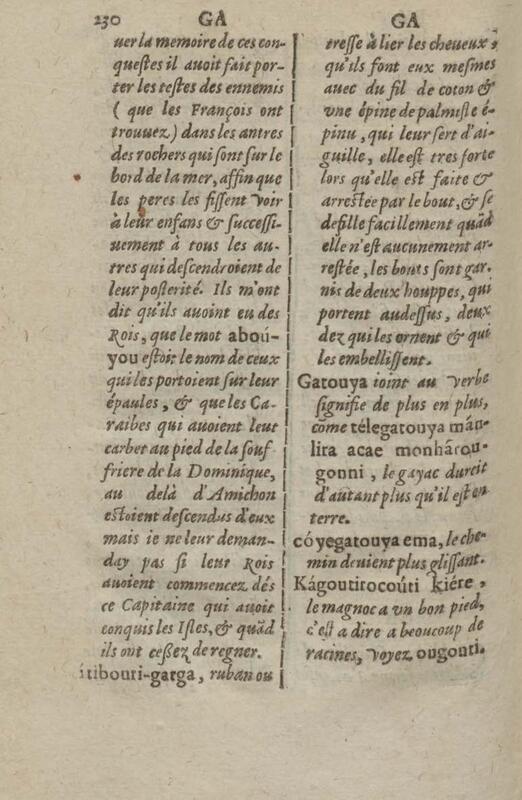 230 GA
uer la memoire de ces con-
questes il avoit fait por-
ter les testes des ennemis
( que les François ont
trouuez) dans les antres
des rochers qui sont sur le
bord de la mer, affin que
les peres les fissent voir
à leur enfans & successi-
uement à tous les au-
tres qui descendroient de
leur posterité. Ils m'ont
dit qu'ils avoint eu des
Rois, que le mot aboú-
you estoit le nom de ceux
qui les portoient sur leur
épaules, & que les Ca-
raibes qui auoient leur
carbet au pied de la souf
friere de la Dominique,
au delà d'Amichon
estoient descendus d'eux
mais ie ne leur deman-
day pas si leur Rois
auoient commencez dés
ce Capitaine qui auoit
conquis les Isles, & quãd
ils ont ceßez de regner.
itibouti-garga, ruban ou
GA
tresse à lier les cheueux,
qu'ils font eux mesmes
auec du fil de coton &
vne épine de palmiste é-
pinu, qui leur sert d'ai-
guille, elle est tres forte
lors qu'elle est faite &
arrestée par le bout, & se
defille facillement quãd
elle n'est aucunement ar-
restée, les bouts sont gar-
nis de deux houppes, qui
portent audessus, deux
dez qui les ornent & qui
les embellissent.
Gatouya ioint au verbe
signifie de plus en plus,
cõme télegatouya mán-
lira acae monhárou-
gonni, le gayac durcit
d'autant plus qu'il est en
terre.
cóyegatouya ema, le che-
min deuient plus glissant.
Kágoutitocoúti kiére,
le magnoc a vn bon pied,
c'est a dire a beaucoup de
racines, voyez ougouti.